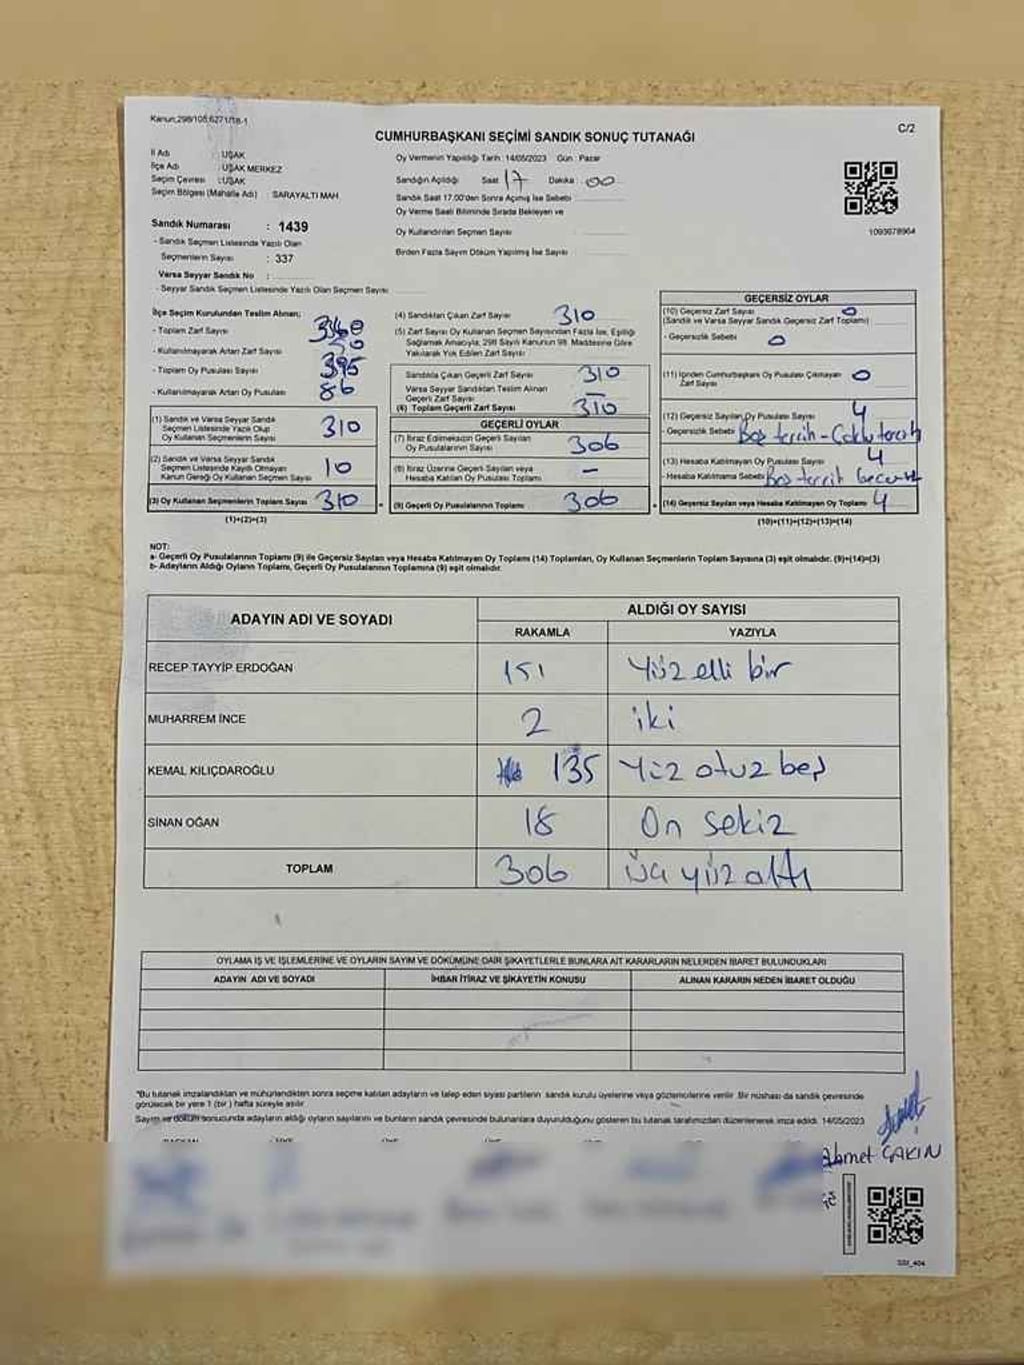 Kanun;298/105;6271/18-1
CUMHURBAŞKANI SEÇİMİ SANDIK SONUÇ TUTANAĞI
C/2
İl Adı : UŞAK
İlçe Adı : UŞAK MERKEZ
Seçim Çevresi : UŞAK
Seçim Bölgesi (Mahalle Adı) : SARAYALTI MAH.
Oy Vermenin Yapıldığı Tarih : 14/05/2023 Gün : Pazar
Sandığın Açıldığı Saat 17 Dakika 00
Sandık Saat 17.00'den Sonra Açılmış İse Sebebi
Oy Verme Saati Bitiminde Sırada Bekleyen ve
Oy Kullandırılan Seçmen Sayısı
Birden Fazla Sayım Döküm Yapılmış İse Sayısı
1093078964
Sandık Numarası : 1439
- Sandık Seçmen Listesinde Yazılı Olan
Seçmenlerin Sayısı : 337
Varsa Seyyar Sandık No :
- Seyyar Sandık Seçmen Listesinde Yazılı Olan Seçmen Sayısı
İlçe Seçim Kurulundan Teslim Alınan;
- Toplam Zarf Sayısı
- Kullanılmayarak Artan Zarf Sayısı
- Toplam Oy Pusulası Sayısı 395
- Kullanılmayarak Artan Oy Pusulası 86
(1) Sandık ve Varsa Seyyar Sandık
Seçmen Listesinde Yazılı Olup
Oy Kullanan Seçmenlerin Sayısı 310
(2) Sandık ve Varsa Seyyar Sandık
Seçmen Listesinde Kayıtlı Olmayan
Kanun Gereği Oy Kullanan Seçmen Sayısı 10
(3) Oy Kullanan Seçmenlerin Toplam Sayısı 310
(1)+(2)=(3)
(4) Sandıktan Çıkan Zarf Sayısı 310
(5) Zarf Sayısı Oy Kullanan Seçmen Sayısından Fazla İse, Eşitliği
Sağlamak Amacıyla, 298 Sayılı Kanunun 98. Maddesine Göre
Yakılarak Yok Edilen Zarf Sayısı
Sandıkta Çıkan Geçerli Zarf Sayısı 310
Varsa Seyyar Sandıktan Teslim Alınan
Geçerli Zarf Sayısı –
(6) Toplam Geçerli Zarf Sayısı 310
GEÇERLİ OYLAR
(7) İtiraz Edilmeksizin Geçerli Sayılan
Oy Pusulalarının Sayısı 306
(8) İtiraz Üzerine Geçerli Sayılan veya
Hesaba Katılan Oy Pusulası Toplamı –
(9) Geçerli Oy Pusulalarının Toplamı 306
GEÇERSİZ OYLAR
(10) Geçersiz Zarf Sayısı
(Sandık ve Varsa Seyyar Sandık Geçersiz Zarf Toplamı)
- Geçersizlik Sebebi 0
(11) İçinden Cumhurbaşkanı Oy Pusulası Çıkmayan
Zarf Sayısı 0
(12) Geçersiz Sayılan Oy Pusulası Sayısı 4
- Geçersizlik Sebebi Boş tercih - Çoklu tercih
(13) Hesaba Katılmayan Oy Pusulası Sayısı 4
- Hesaba Katılmama Sebebi Boş tercih
(14) Geçersiz Sayılan veya Hesaba Katılmayan Oy Toplamı 4
(10)+(11)+(12)+(13)=(14)
NOT:
a- Geçerli Oy Pusulalarının Toplamı (9) ile Geçersiz Sayılan veya Hesaba Katılmayan Oy Toplamı (14) Toplamları, Oy Kullanan Seçmenlerin Toplam Sayısına (3) eşit olmalıdır. (9)+(14)=(3)
b- Adayların Aldığı Oyların Toplamı, Geçerli Oy Pusulalarının Toplamına (9) eşit olmalıdır.
ADAYIN ADI VE SOYADI
ALDIĞI OY SAYISI
RAKAMLA YAZIYLA
RECEP TAYYİP ERDOĞAN 151 Yüz elli bir
MUHARREM İNCE 2 iki
KEMAL KILIÇDAROĞLU 135 Yüz otuz beş
SİNAN OĞAN 18 On sekiz
TOPLAM 306 Üç yüz altı
OYLAMA İŞ VE İŞLEMLERİNE VE OYLARIN SAYIM VE DÖKÜMÜNE DAİR ŞİKAYETLERLE BUNLARA AİT KARARLARIN NELERDEN İBARET BULUNDUKLARI
ADAYIN ADI VE SOYADI İHBAR İTİRAZ VE ŞİKAYETİN KONUSU ALINAN KARARIN NEDEN İBARET OLDUĞU
*Bu tutanak imzalandıktan ve mühürlendikten sonra seçime katılan adayların ve talep eden siyasi partilerin sandık kurulu üyelerine veya gözlemcilerine verilir. Bir nüshası da sandık çevresinde
görülecek bir yere 1 (bir) hafta süreyle asılır.
Sayım ve döküm sonucunda adayların aldığı oyların sayılarını ve bunların sandık çevresinde bulunanlara duyurulduğunu gösteren bu tutanak tarafımızdan düzenlenerek imza edildi. 14/05/2023
Ahmet ÇAKIN